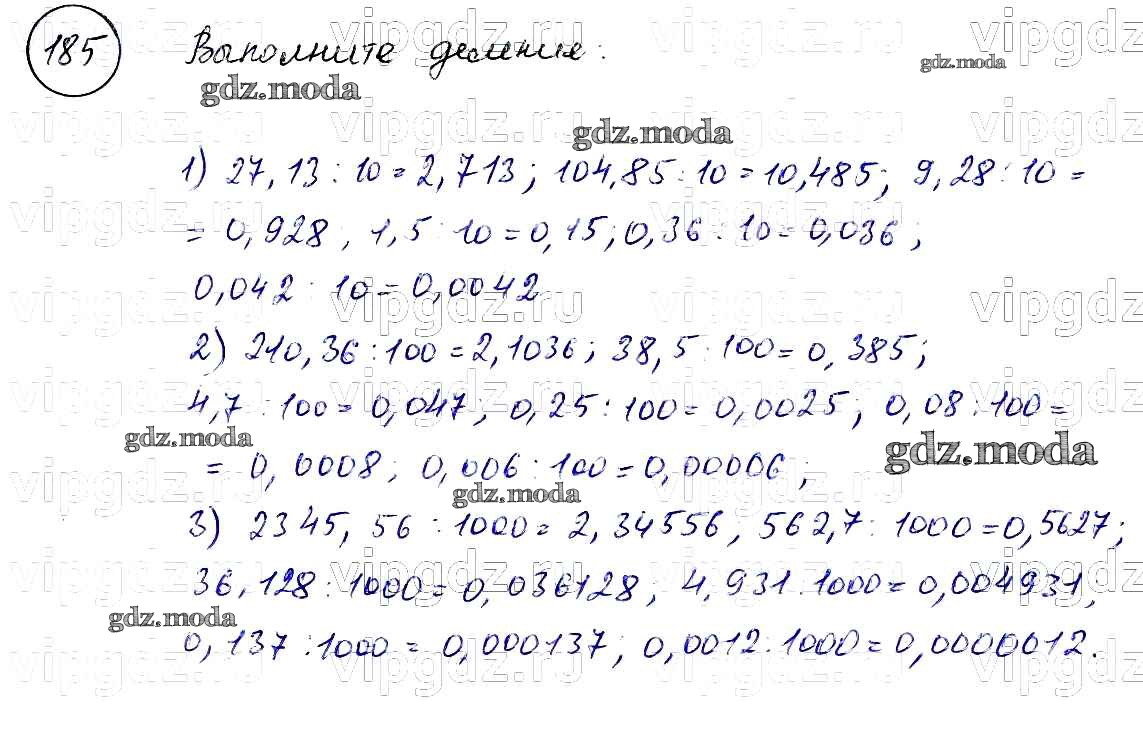 185 Выполните деление:
1) 27,13 : 10 = 2,713; 104,85 : 10 = 10,485; 9,28 : 10 =
= 0,928, 1,5 : 10 = 0,15; 0,36 : 10 = 0,036;
0,042 : 10 = 0,0042
2) 210,36 : 100 = 2,1036; 38,5 : 100 = 0,385;
4,7 : 100 = 0,047; 0,25 : 100 = 0,0025; 0,08 : 100 =
= 0,0008; 0,006 : 100 = 0,00006;
3) 2345,56 : 1000 = 2,34556, 562,7 : 1000 = 0,5627;
36,128 : 1000 = 0,036128, 4,931 : 1000 = 0,004931,
0,137 : 1000 = 0,000137; 0,0012 : 1000 = 0,0000012.
gdz.moda
gdz.moda
gdz.moda
gdz.moda
gdz.moda
gdz.moda
gdz.moda
vipgdz.ru